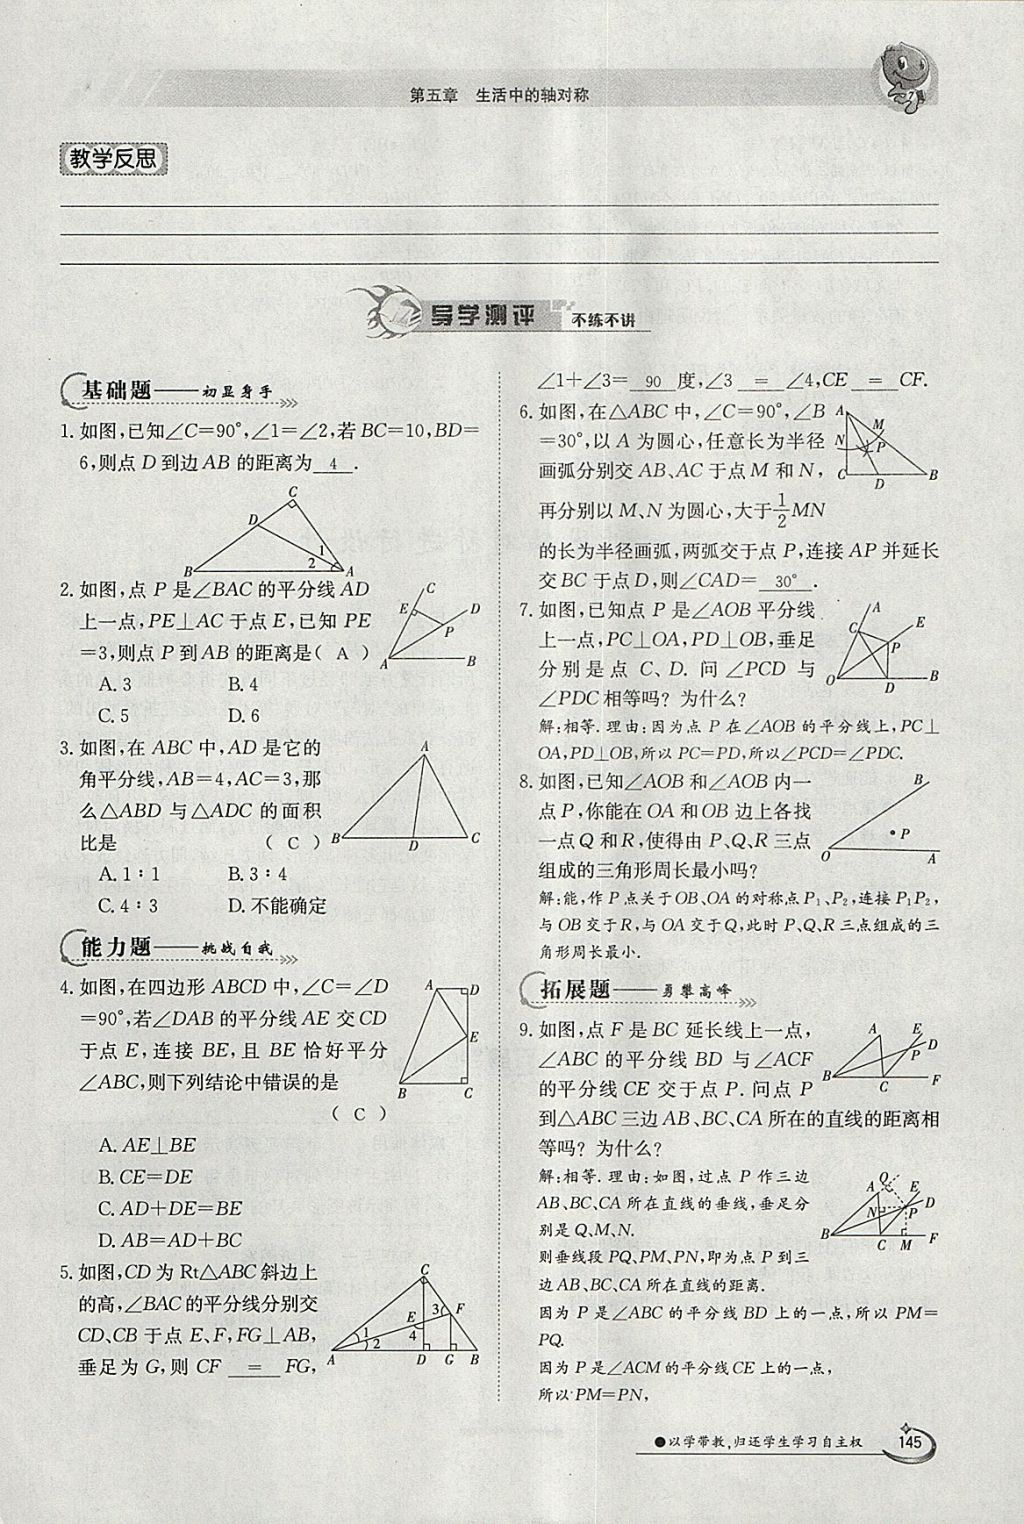 第五章 生活中的轴对称
教学反思
导学测评 不练不讲
基础题——初显身手
1. 如图,已知∠C=90°,∠1=∠2,若BC=10,BD=
6,则点 D 到边 AB 的距离为 4 .
C
D
1
2
B
A
2. 如图,点 P 是∠BAC 的平分线 AD
上一点,PE⊥AC 于点 E,已知 PE
=3,则点 P 到 AB 的距离是( A )
A. 3 B. 4
C. 5 D. 6
C
E
D
P
A
B
3. 如图,在 ABC 中,AD 是它的
角平分线,AB=4,AC=3,那
么△ABD 与△ADC 的面积
比是 ( C )
A. 1∶1 B. 3∶4
C. 4∶3 D. 不能确定
A
B
D
C
能力题——挑战自我
4. 如图,在四边形 ABCD 中,∠C=∠D
=90°,若∠DAB 的平分线 AE 交 CD
于点 E,连接 BE,且 BE 恰好平分
∠ABC,则下列结论中错误的是
( C )
A. AE⊥BE
B. CE=DE
C. AD+DE=BE
D. AB=AD+BC
A
D
E
B
C
5. 如图,CD 为 Rt△ABC 斜边上
的高,∠BAC 的平分线分别交
CD、CB 于点 E、F,FG⊥AB,
垂足为 G,则 CF = FG,
C
3
F
E
4
1
2
A
D
G
B
∠1+∠3= 90 度,∠3 = ∠4,CE = CF.
6. 如图,在△ABC 中,∠C=90°,∠B
=30°,以 A 为圆心,任意长为半径
画弧分别交 AB、AC 于点 M 和 N,
再分别以 M、N 为圆心,大于1/2MN
的长为半径画弧,两弧交于点 P,连接 AP 并延长
交 BC 于点 D,则∠CAD= 30° .
A
M
N
P
C
D
B
7. 如图,已知点 P 是∠AOB 平分线
上一点,PC⊥OA,PD⊥OB,垂足
分别是点 C、D. 问∠PCD 与
∠PDC 相等吗? 为什么?
A
C
E
P
O
D
B
解:相等. 理由:因为点 P 在∠AOB 的平分线上,PC⊥
OA,PD⊥OB,所以 PC=PD,所以∠PCD=∠PDC.
8. 如图,已知∠AOB 和∠AOB 内一
点 P,你能在 OA 和 OB 边上各找
一点 Q 和 R,使得由 P、Q、R 三点
组成的三角形周长最小吗?
B
P
O
A
解:能,作 P 点关于 OB、OA 的对称点 P₁、P₂,连接 P₁P₂,
与 OB 交于 R,与 OA 交于 Q,此时 P、Q、R 三点组成的三
角形周长最小.
拓展题——勇攀高峰
9. 如图,点 F 是 BC 延长线上一点,
∠ABC 的平分线 BD 与∠ACF
的平分线 CE 交于点 P. 问点 P
到△ABC 三边 AB、BC、CA 所在的直线的距离相
等吗? 为什么?
A
E
D
P
B
C
F
解:相等. 理由:如图,过点 P 作三边
AB、BC、CA 所在直线的垂线,垂足分
别是 Q、M、N.
则垂线段 PQ、PM、PN,即为点 P 到三
边 AB、BC、CA 所在直线的距离.
Q
A
E
D
N
P
B
C
M
F
因为 P 是∠ABC 的平分线 BD 上的一点,所以 PM=
PQ.
因为 P 是∠ACM 的平分线 CE 上的一点,
所以 PM=PN,
●以学带教,归还学生学习自主权
145